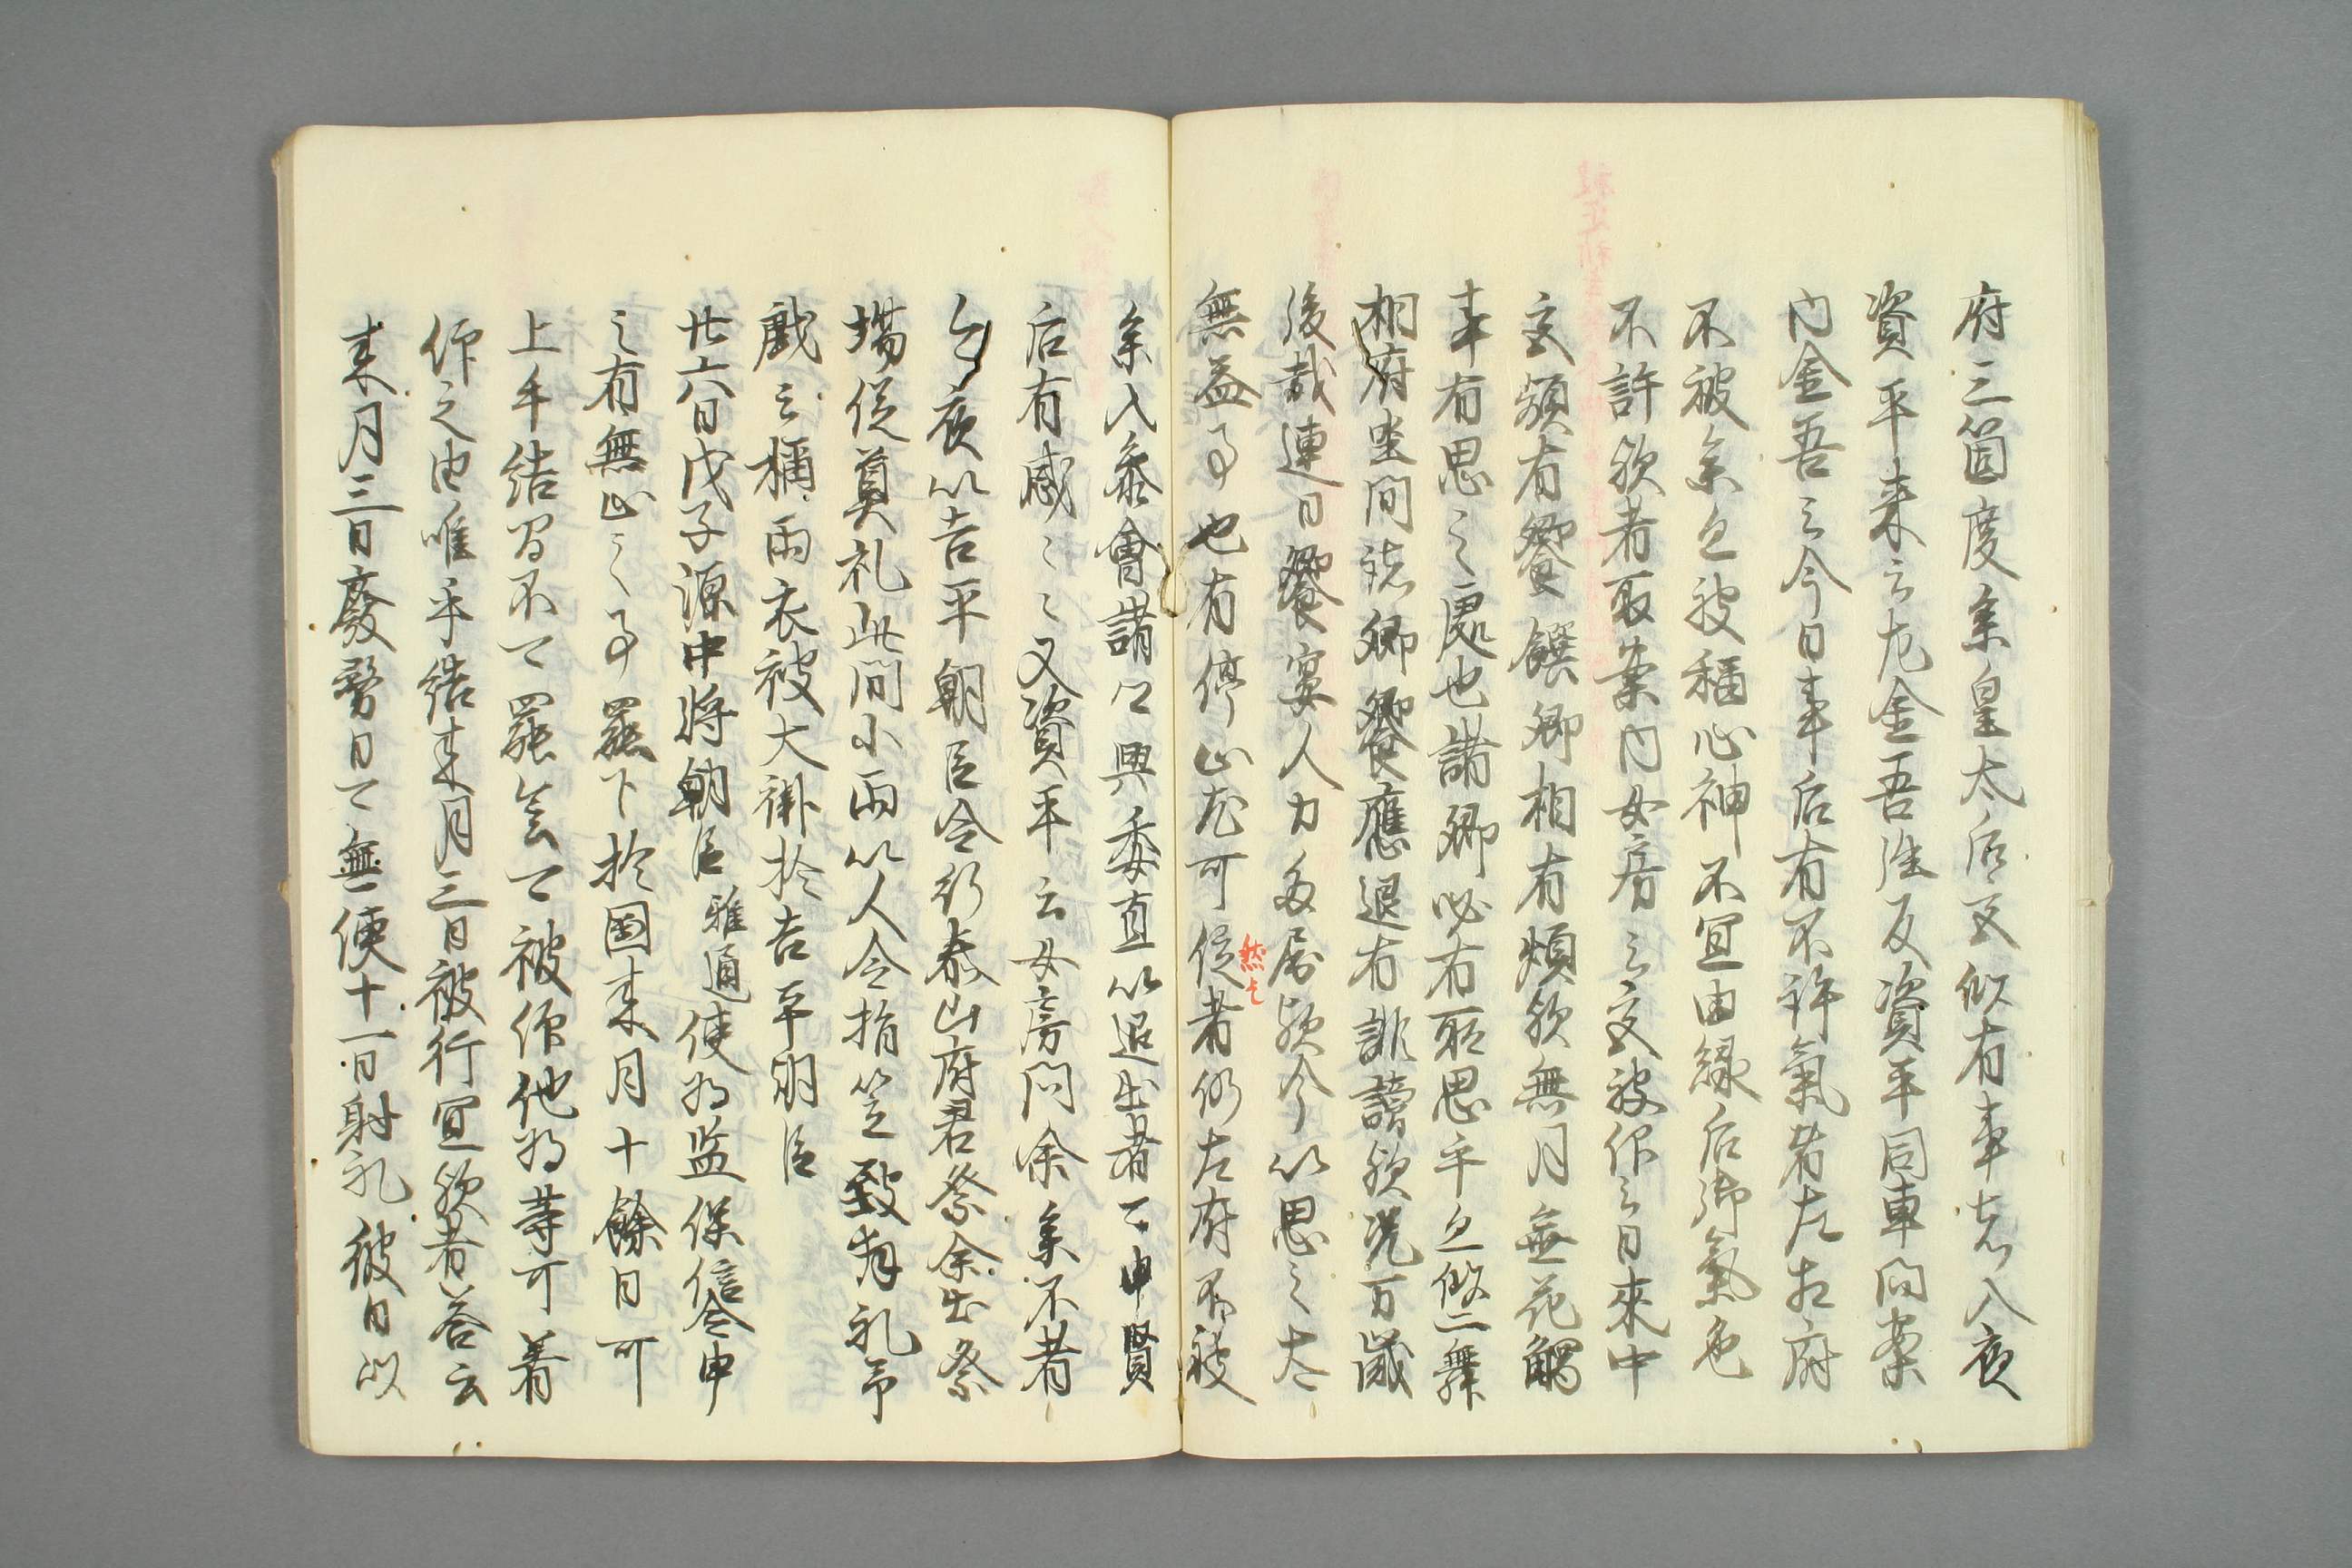 府三箇度参皇太后宮似有事志入夜
資平来云左金吾消息及資平同車向案
内金吾云今日事后有不許氣者左相府
不被参之被稱心神不宜由縁后御氣色
不許歟者取案内女房云宮被仰云日来中
宮頻有饗饌卿相有煩歟無月無花觸
事有思之處也諸卿必有所思乎之攸二舞
相府坐間諸卿饗應退有誹謗歟況万歳
後哉連日饗宴人力多屈歟今以思之太
無益事也有停止尤可佳者仍左府不被
然之
参入参會諸公興委直以退出者可申賢
后有感々々又資平云女房問余参不者
今夜以吉平朝臣令行泰山府君祭余出祭
場從奠礼此間小雨以人令指笠致拜礼予
戲云稱雨衣被大褂於吉平朝臣
廿六日戊子源中將朝臣雅通使将監保信令申
云有無止之事罷下於國来月十餘日可
上手結習不可罷会可被仰他将等可着
仰之由唯手結来月三日被行宜歟者答云
来月三日廢務日可無便十一日射礼彼日以